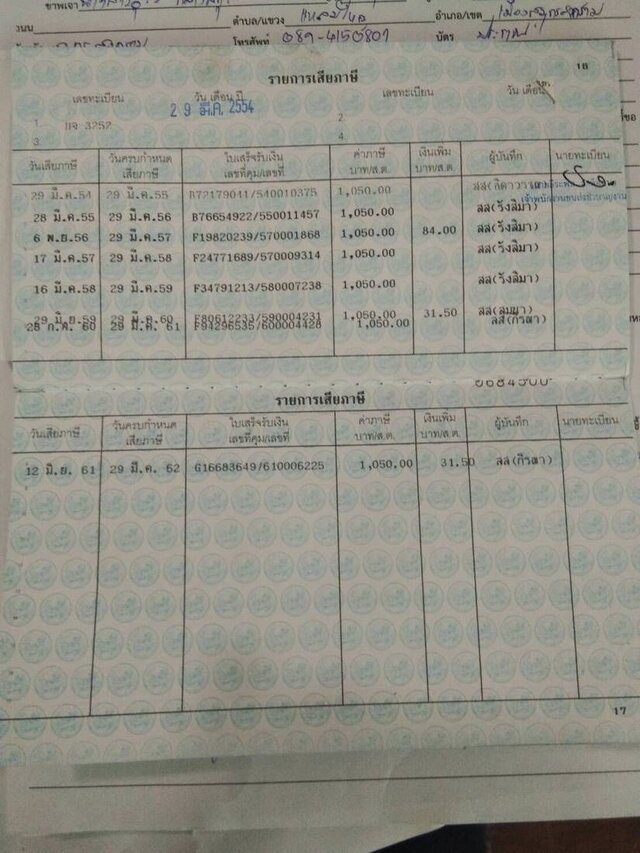 ข้าพเจ้า
ถนน ตำบล/แขวง แหลมใหญ่ อำเภอ/เขต เมืองสมุทรสงคราม
โทรศัพท์ 089-4150801 บัตร
18
รายการเสียภาษี
เลขทะเบียน วัน เดือน ปี เลขทะเบียน วัน เดือน ปี
29 มี.ค. 2554
1 บจ 3252 2
3 4
วันเสียภาษี วันครบกำหนดเสียภาษี ใบเสร็จรับเงิน เลขที่คุม/เลขที่ ค่าภาษี บาท/ส.ต. เงินเพิ่ม บาท/ส.ต. ผู้บันทึก นายทะเบียน
29 มี.ค.54 29 มี.ค.55 B72179041/540010375 1,050.00
เจ้าพนักงานขนส่งชำนาญงาน
28 มี.ค.55 29 มี.ค.56 B76654922/550011457 1,050.00 สส(รังสิมา)
6 พ.ย.56 29 มี.ค.57 F19820239/570001868 1,050.00 84.00 สส(รังสิมา)
17 มี.ค.57 29 มี.ค.58 F24771689/570009314 1,050.00 สส(รังสิมา)
16 มี.ค.58 29 มี.ค.59 F34791213/580007238 1,050.00 สส(รังสิมา)
29 มิ.ย.59 29 มี.ค.60 F80612233/590004231 1,050.00 31.50
28 ก.ค. 60 29 มี.ค. 61 F94296535/600004428 1,050.00 สส(กิรณา)
รายการเสียภาษี
วันเสียภาษี วันครบกำหนดเสียภาษี ใบเสร็จรับเงิน เลขที่คุม/เลขที่ ค่าภาษี บาท/ส.ต. เงินเพิ่ม บาท/ส.ต. ผู้บันทึก นายทะเบียน
12 มิ.ย. 61 29 มี.ค. 62 G16683649/610006225 1,050.00 31.50 สส(กิรณา)
17